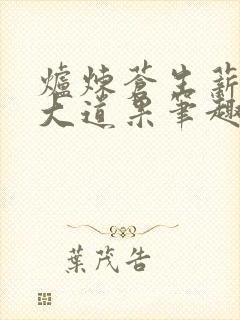 爐煉蒼生薪
大道果筆趣
葉茂告